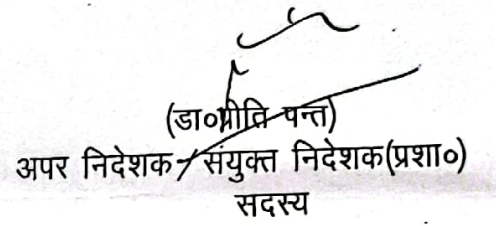 (डा०प्रीति पन्त)
अपर निदेशक / संयुक्त निदेशक(प्रशा०)
सदस्य